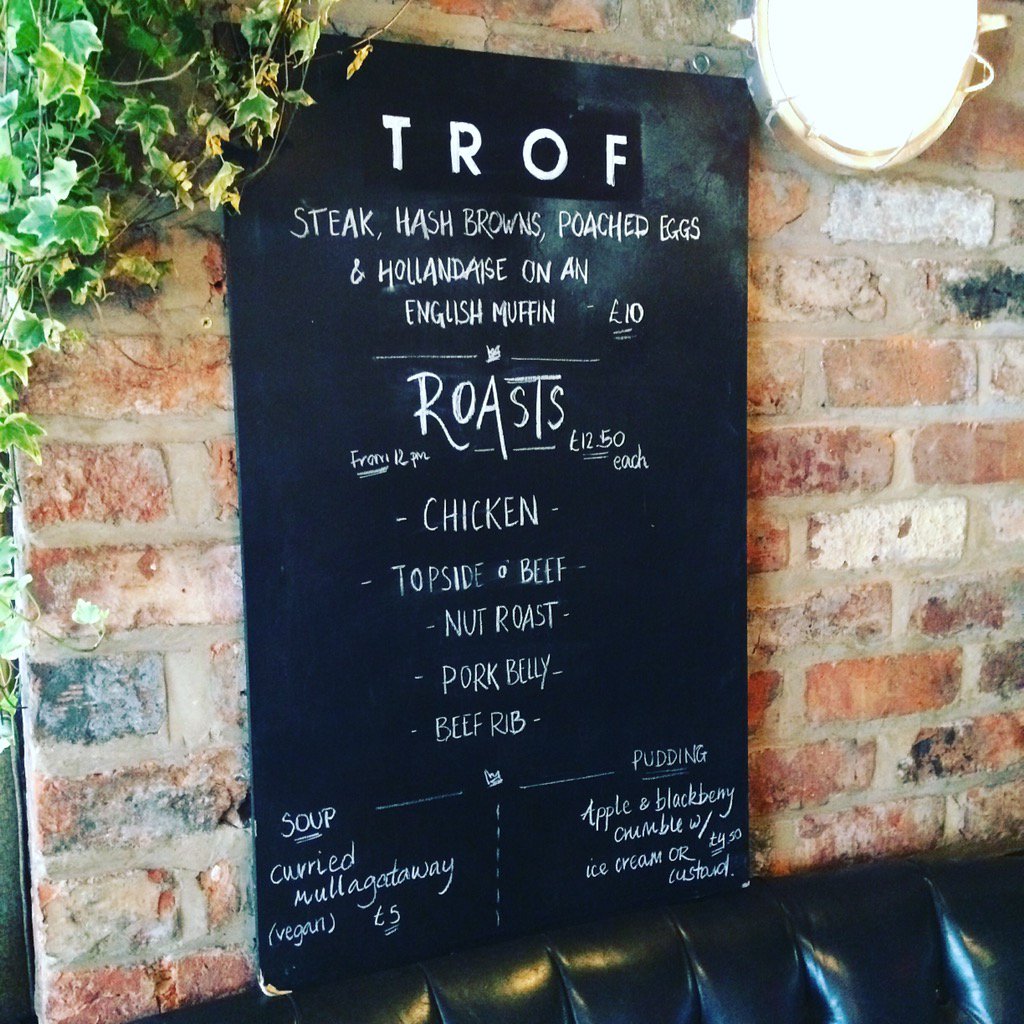 TROF
STEAK, HASH BROWNS, POACHED EGGS
& HOLLANDAISE ON AN
ENGLISH MUFFIN - £10
ROASTS
From 12 pm
£12.50
each
- CHICKEN -
- TOPSIDE O' BEEF -
- NUT ROAST -
- PORK BELLY -
- BEEF RIB -
SOUP
curried
mullagataway
(vegan) £5
PUDDING
Apple & blackberry
crumble w/ £4.50
ice cream OR
custard.